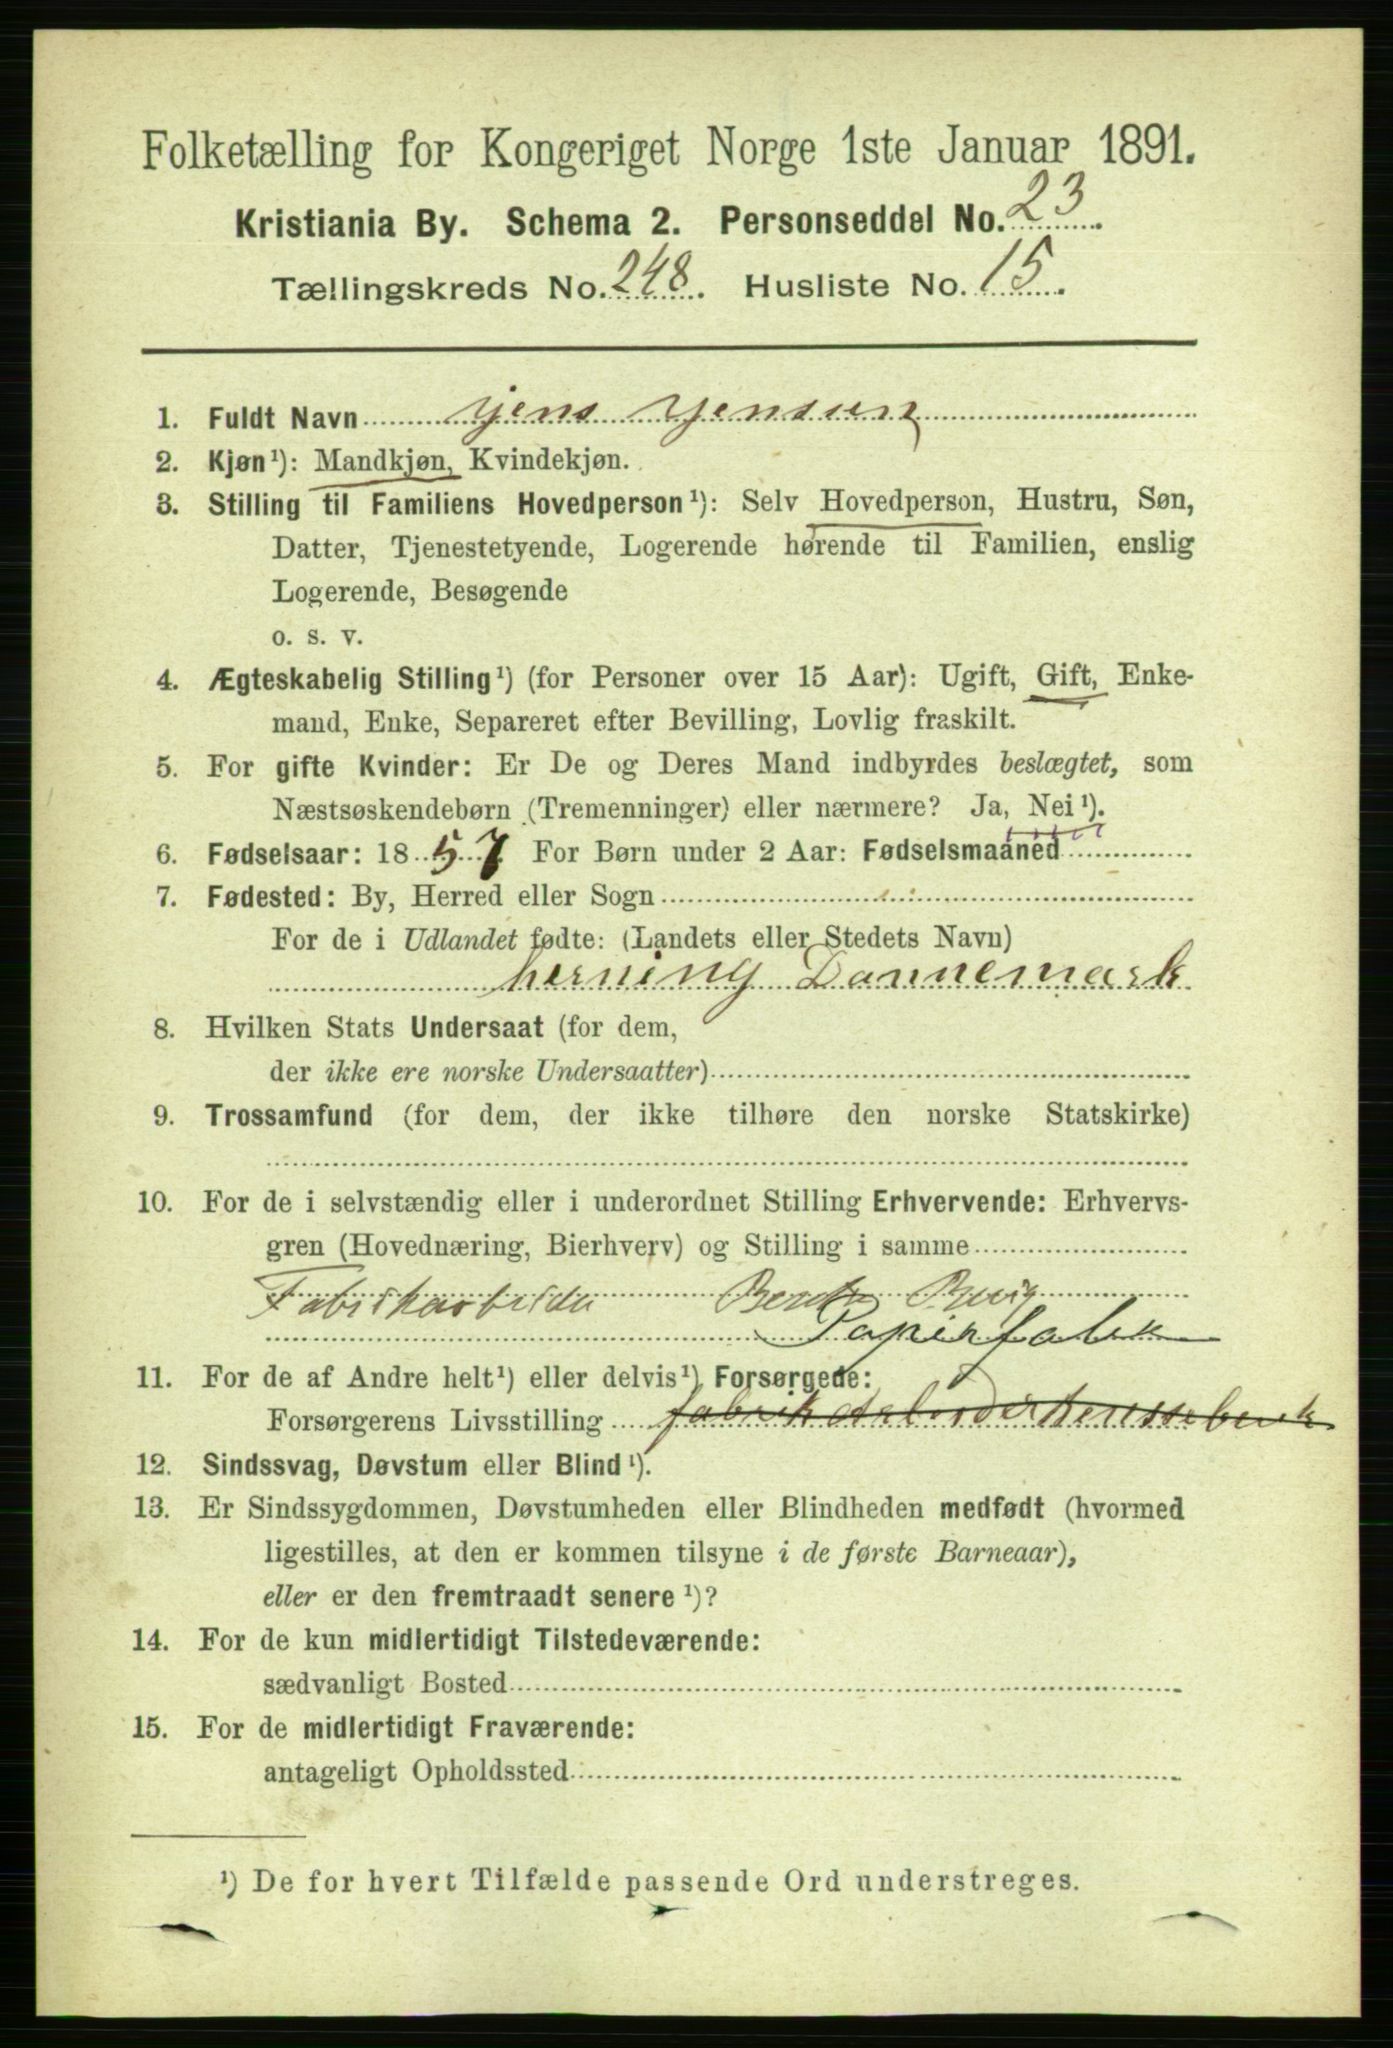 Folketælling for Kongeriget Norge 1ste Januar 1891.
Kristiania By. Schema 2. Personseddel No. 23.
Tællingskreds No. 248. Husliste No. 15.
1. Fuldt Navn Jens Jensen
2. Kjøn¹): Mandkjøn, Kvindekjøn.
3. Stilling til Familiens Hovedperson¹): Selv Hovedperson, Hustru, Søn,
Datter, Tjenestetyende, Logerende hørende til Familien, enslig
Logerende, Besøgende
o. s. v.
4. Ægteskabelig Stilling¹) (for Personer over 15 Aar): Ugift, Gift, Enke-
mand, Enke, Separeret efter Bevilling, Lovlig fraskilt.
5. For gifte Kvinder: Er De og Deres Mand indbyrdes beslægtet, som
Næstsøskendebørn (Tremenninger) eller nærmere? Ja, Nei¹).
6. Fødselsaar: 1857. For Børn under 2 Aar: Fødselsmaaned
7. Fødested: By, Herred eller Sogn
For de i Udlandet fødte: (Landets eller Stedets Navn)
herning Dannemark
8. Hvilken Stats Undersaat (for dem,
der ikke ere norske Undersaatter)
9. Trossamfund (for dem, der ikke tilhøre den norske Statskirke)
10. For de i selvstændig eller i underordnet Stilling Erhvervende: Erhvervs-
gren (Hovednæring, Bierhverv) og Stilling i samme
Fabrikarbeider
Papirfabrk
11. For de af Andre helt¹) eller delvis¹) Forsørgede:
Forsørgerens Livsstilling fabrik
12. Sindssvag, Døvstum eller Blind¹).
13. Er Sindssygdommen, Døvstumheden eller Blindheden medfødt (hvormed
ligestilles, at den er kommen tilsyne i de første Barneaar),
eller er den fremtraadt senere¹)?
14. For de kun midlertidigt Tilstedeværende:
sædvanligt Bosted
15. For de midlertidigt Fraværende:
antageligt Opholdssted
¹) De for hvert Tilfælde passende Ord understreges.